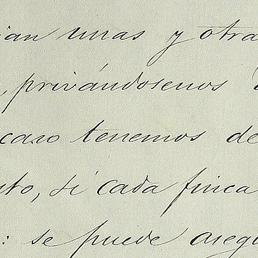 ian unas y otra
, privándosenos
caso tenemos de
to, si cada finca
: se puede asegu